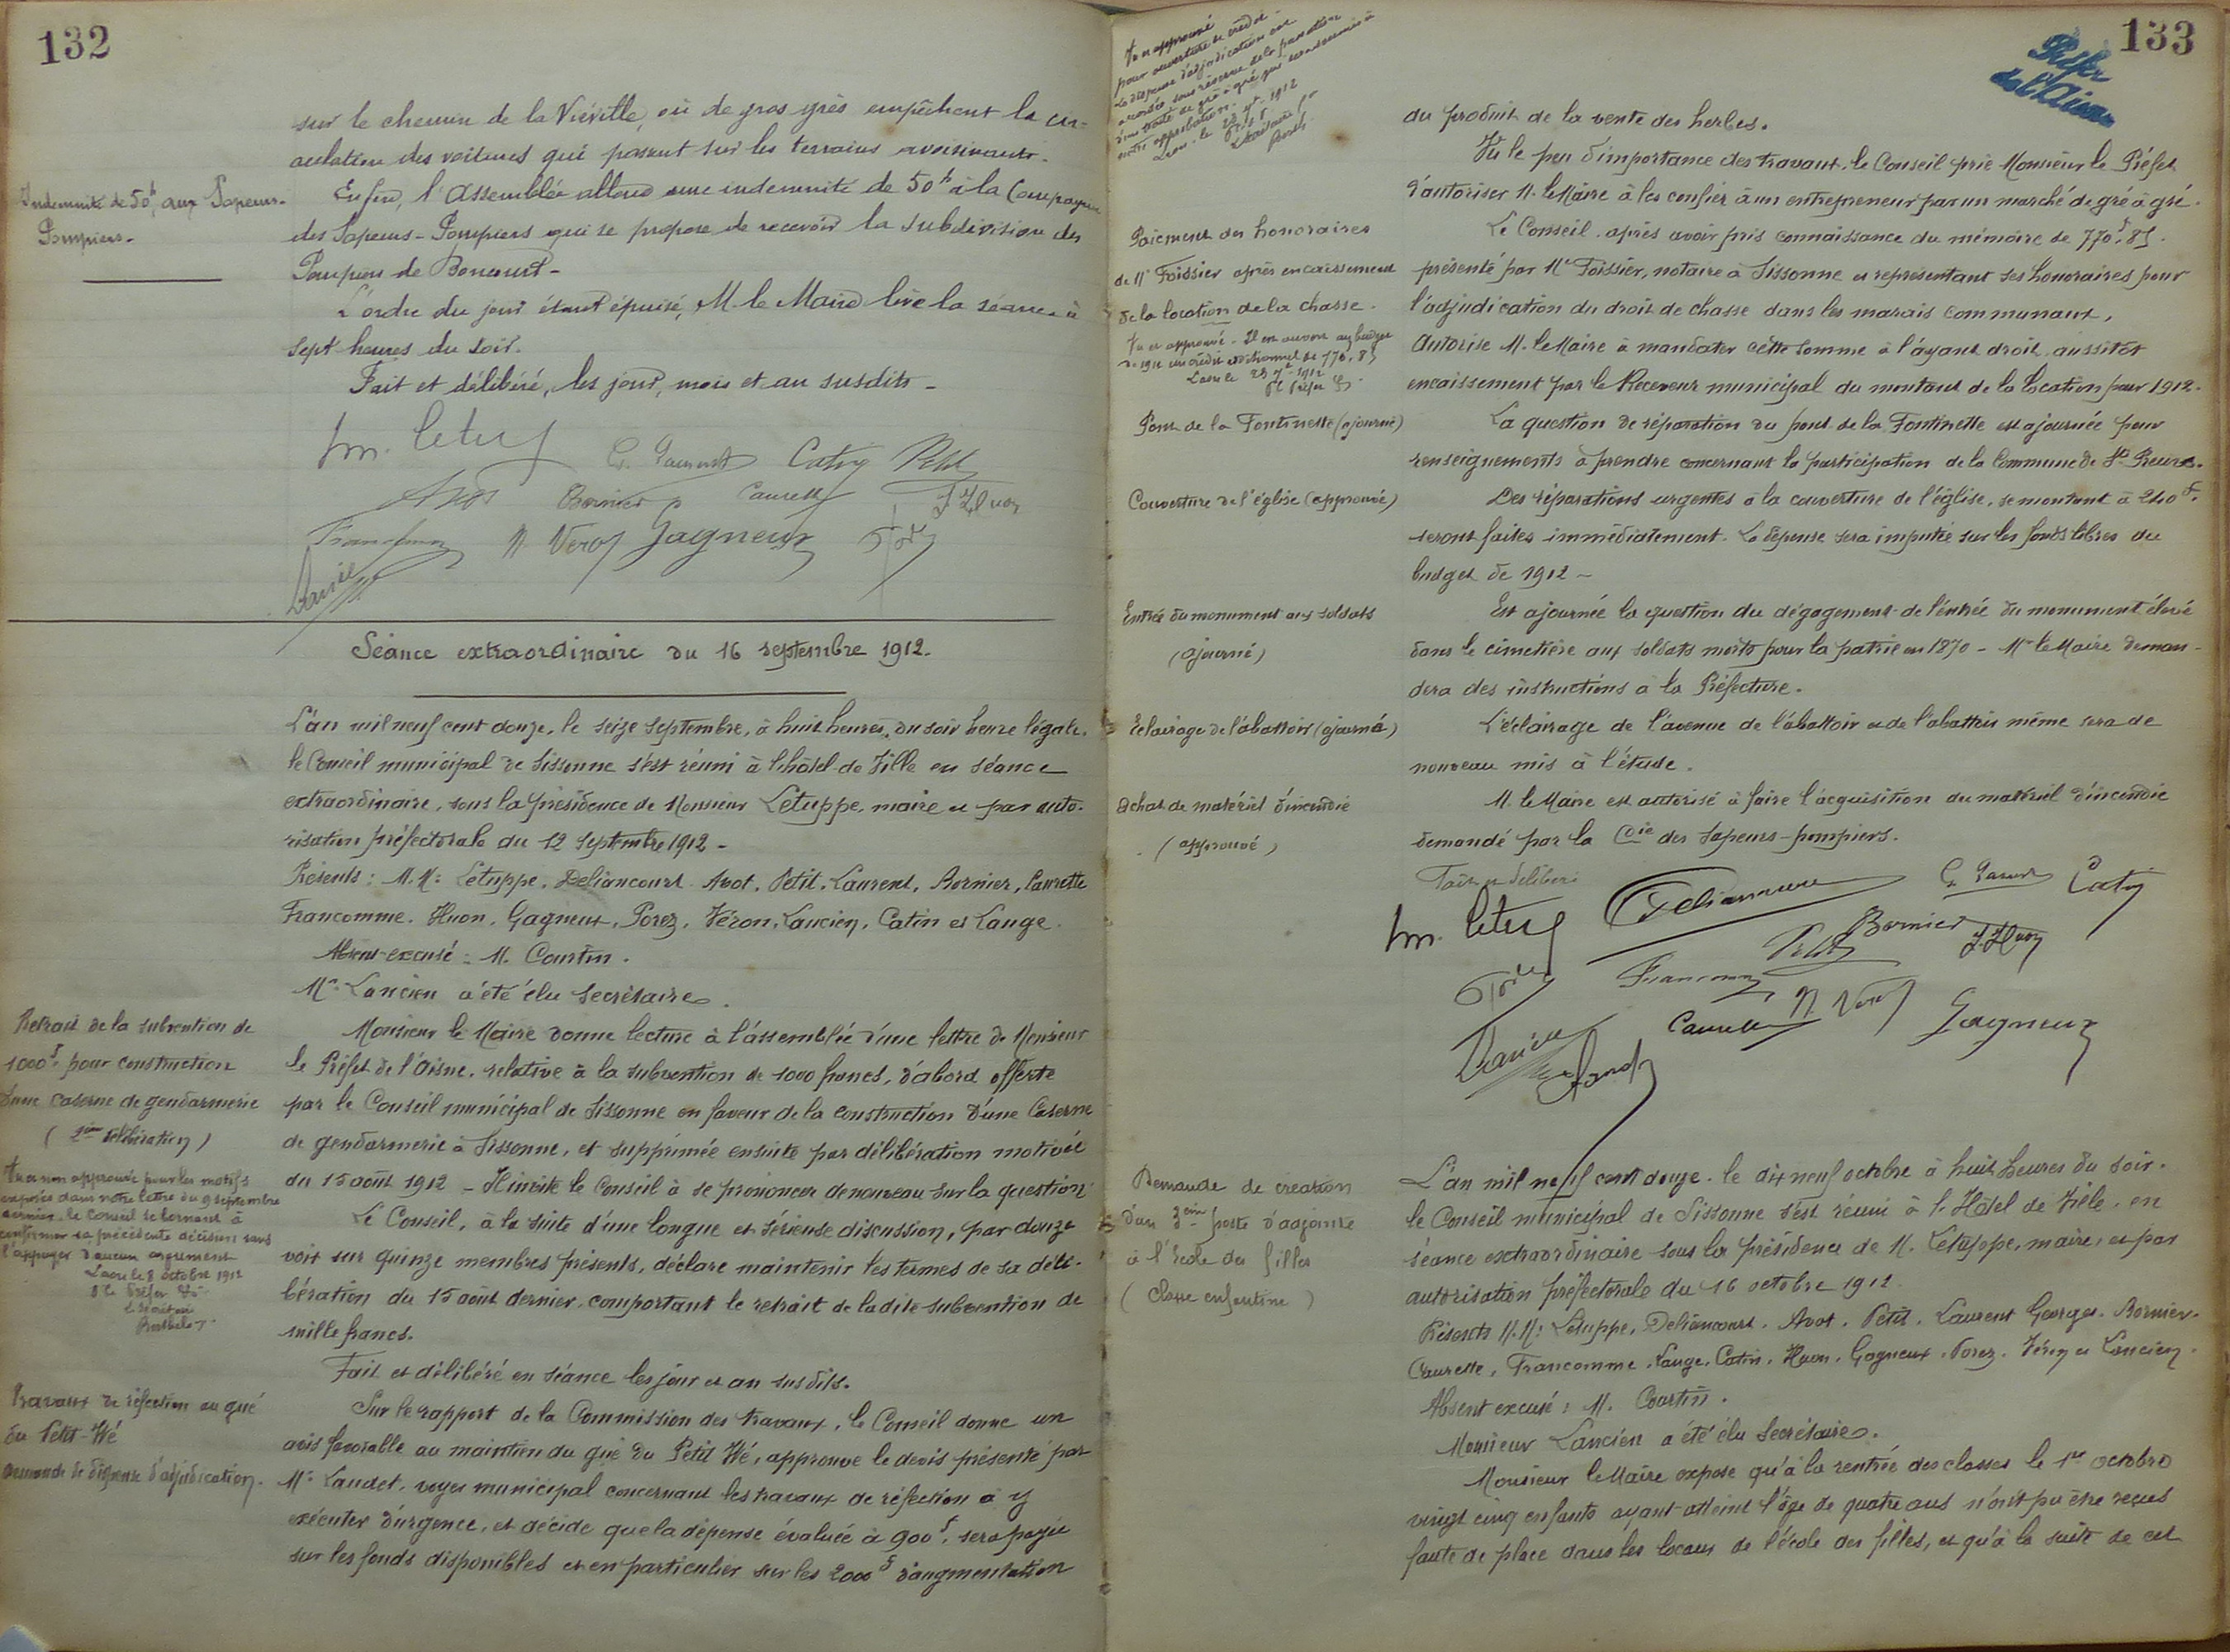 132
sur le chemin de la Viéville, où de gros grès empêchent la cir-
culation des voitures qui passent sur les terrains avoisinants.
Indemnité de 50f aux Sapeurs-
Pompiers.
Enfin, l'Assemblée alloue une indemnité de 50f à la Compagnie
des Sapeurs-Pompiers qui se propose de recevoir la subdivision des
Pompiers de Boncourt-
L'ordre du jour étant épuisé, M. le Maire lève la séance à
sept heures du soir.
Fait et délibéré, les jour, mois et an susdits-
G. Laurent Catin Petit
Avot Bornier Caurette J. Huon
Francomme N. Véron Gagneux Porez
Lancien
Séance extraordinaire du 16 septembre 1912.
L'an mil neuf cent douze, le seize septembre, à huit heures, du soir heure légale,
le Conseil municipal de Sissonne s'est réuni à l'hôtel de Ville en séance
extraordinaire, sous la présidence de Monsieur Létuppe, maire et par auto-
risation préfectorale du 12 septembre 1912-
Présents: M.M: Létuppe, Deliancourt, Avot, Petit, Laurent, Bornier, Caurette
Francomme, Huon, Gagneux, Porez, Véron, Lancien, Catin et Lange.
Absent-excusé: M. Courtin.
Mr. Lancien a été élu Secrétaire.
Retrait de la subvention de
1000f. pour construction
d'une caserne de gendarmerie
(2ème délibération)
Vu et non approuvé pour les motifs
exposés dans notre lettre du 9 septembre
dernier, le Conseil se bornant à
confirmer sa précédente décision sans
l'appuyer d'aucun argument
Laon le 8 octobre 1912
Monsieur le Maire donne lecture à l'assemblée d'une lettre de Monsieur
le Préfet de l'Aisne, relative à la subvention de 1000 francs, d'abord offerte
par le Conseil municipal de Sissonne en faveur de la construction d'une Caserne
de gendarmerie à Sissonne, et supprimée ensuite par délibération motivée
du 15 août 1912 - Il invite le Conseil à se prononcer de nouveau sur la question
Le Conseil, à la suite d'une longue et sérieuse discussion, par douze
voix sur quinze membres présents, déclare maintenir les termes de sa déli-
bération du 15 août dernier, comportant le retrait de ladite subvention de
mille francs.
Fait et délibéré en séance les jour et an susdits.
Travaux de réfection au gué
du Petit-Wé
Demande de dispense d'adjudication.
Sur le rapport de la Commission des travaux, le Conseil donne un
avis favorable au maintien du gué du Petit Wé, approuve le devis présenté par
Mr. Laudet, voyer municipal concernant les travaux de réfection à y
exécuter d'urgence, et décide que la dépense évaluée à 900f. sera payée
sur les fonds disponibles et en particulier sur les 2000f d'augmentation
133
Préfre
de l'Aisne
Vu et approuvé
pour ouverture de crédit
La dispense d'adjudication est
accordée sous réserve de la passation
d'un traité de gré à gré qui sera soumis à
notre approbation.
Laon, le 23 9bre 1912
du produit de la vente des herbes.
Vu le peu d'importance des travaux, le Conseil prie Monsieur le Préfet
d'autoriser M. le Maire à les confier à un entrepreneur par un marché de gré à gré.
Paiement des honoraires
de Me Foissier après encaissement
de la location de la chasse.
Vu et approuvé. Il est ouvert au budget
de 1912 un crédit additionnel de 770,85
Laon le 23 9bre 1912
Le Conseil, après avoir pris connaissance du mémoire de 770f,85.
présenté par Me Foissier, notaire à Sissonne et représentant ses honoraires pour
l'adjudication du droit de chasse dans les marais communaux,
Autorise M. le Maire à mandater cette somme à l'ayant droit aussitôt
encaissement par le Receveur municipal du montant de la location pour 1912.
Pont de la Fontinette (ajourné)
La question de réparation du pont de la Fontinette est ajournée pour
renseignements à prendre concernant la participation de la Commune de Ste Preuve.
Couverture de l'église (approuvé)
Des réparations urgentes à la couverture de l'église, se montant à 240f.
seront faites immédiatement. La dépense sera imputée sur les fonds libres du
budget de 1912-
Entrée du monument aux soldats
(ajourné)
Est ajournée la question du dégagement de l'entrée du monument élevé
dans le cimetière aux soldats morts pour la patrie en 1870 - Mr le Maire deman-
dera des instructions à la Préfecture.
Eclairage de l'abattoir (ajourné)
L'éclairage de l'avenue de l'abattoir et de l'abattoir même sera de
nouveau mis à l'étude.
Achat de matériel d'incendie
(approuvé)
M. le Maire est autorisé à faire l'acquisition du matériel d'incendie
demandé par la Cie des sapeurs-pompiers.
Fait et délibéré
Deliancourt G. Laurent Catin
Petit Bornier J. Huon
Porez Francomme
Caurette N. Véron Gagneux
Lancien
Demande de création
d'un 3ème poste d'adjointe
à l'école des filles
(Classe enfantine)
L'an mil neuf cent douze, le dix neuf octobre à huit heures du soir.
le Conseil municipal de Sissonne s'est réuni à l'Hôtel de Ville, en
séance extraordinaire sous la présidence de M. Létuppe, maire, et par
autorisation préfectorale du 16 octobre 1912
Présents M.M: Létuppe, Deliancourt, Avot, Petit, Laurent Georges, Bornier,
Caurette, Francomme, Lange, Catin, Huon, Gagneux, Porez, Véron et Lancien.
Absent excusé: M. Courtin.
Monsieur Lancien a été élu Secrétaire.
Monsieur le Maire expose qu'à la rentrée des classes le 1er octobre
vingt cinq enfants ayant atteint l'âge de quatre ans n'ont pu être reçus
faute de place dans les locaux de l'école des filles, et qu'à la suite de cet